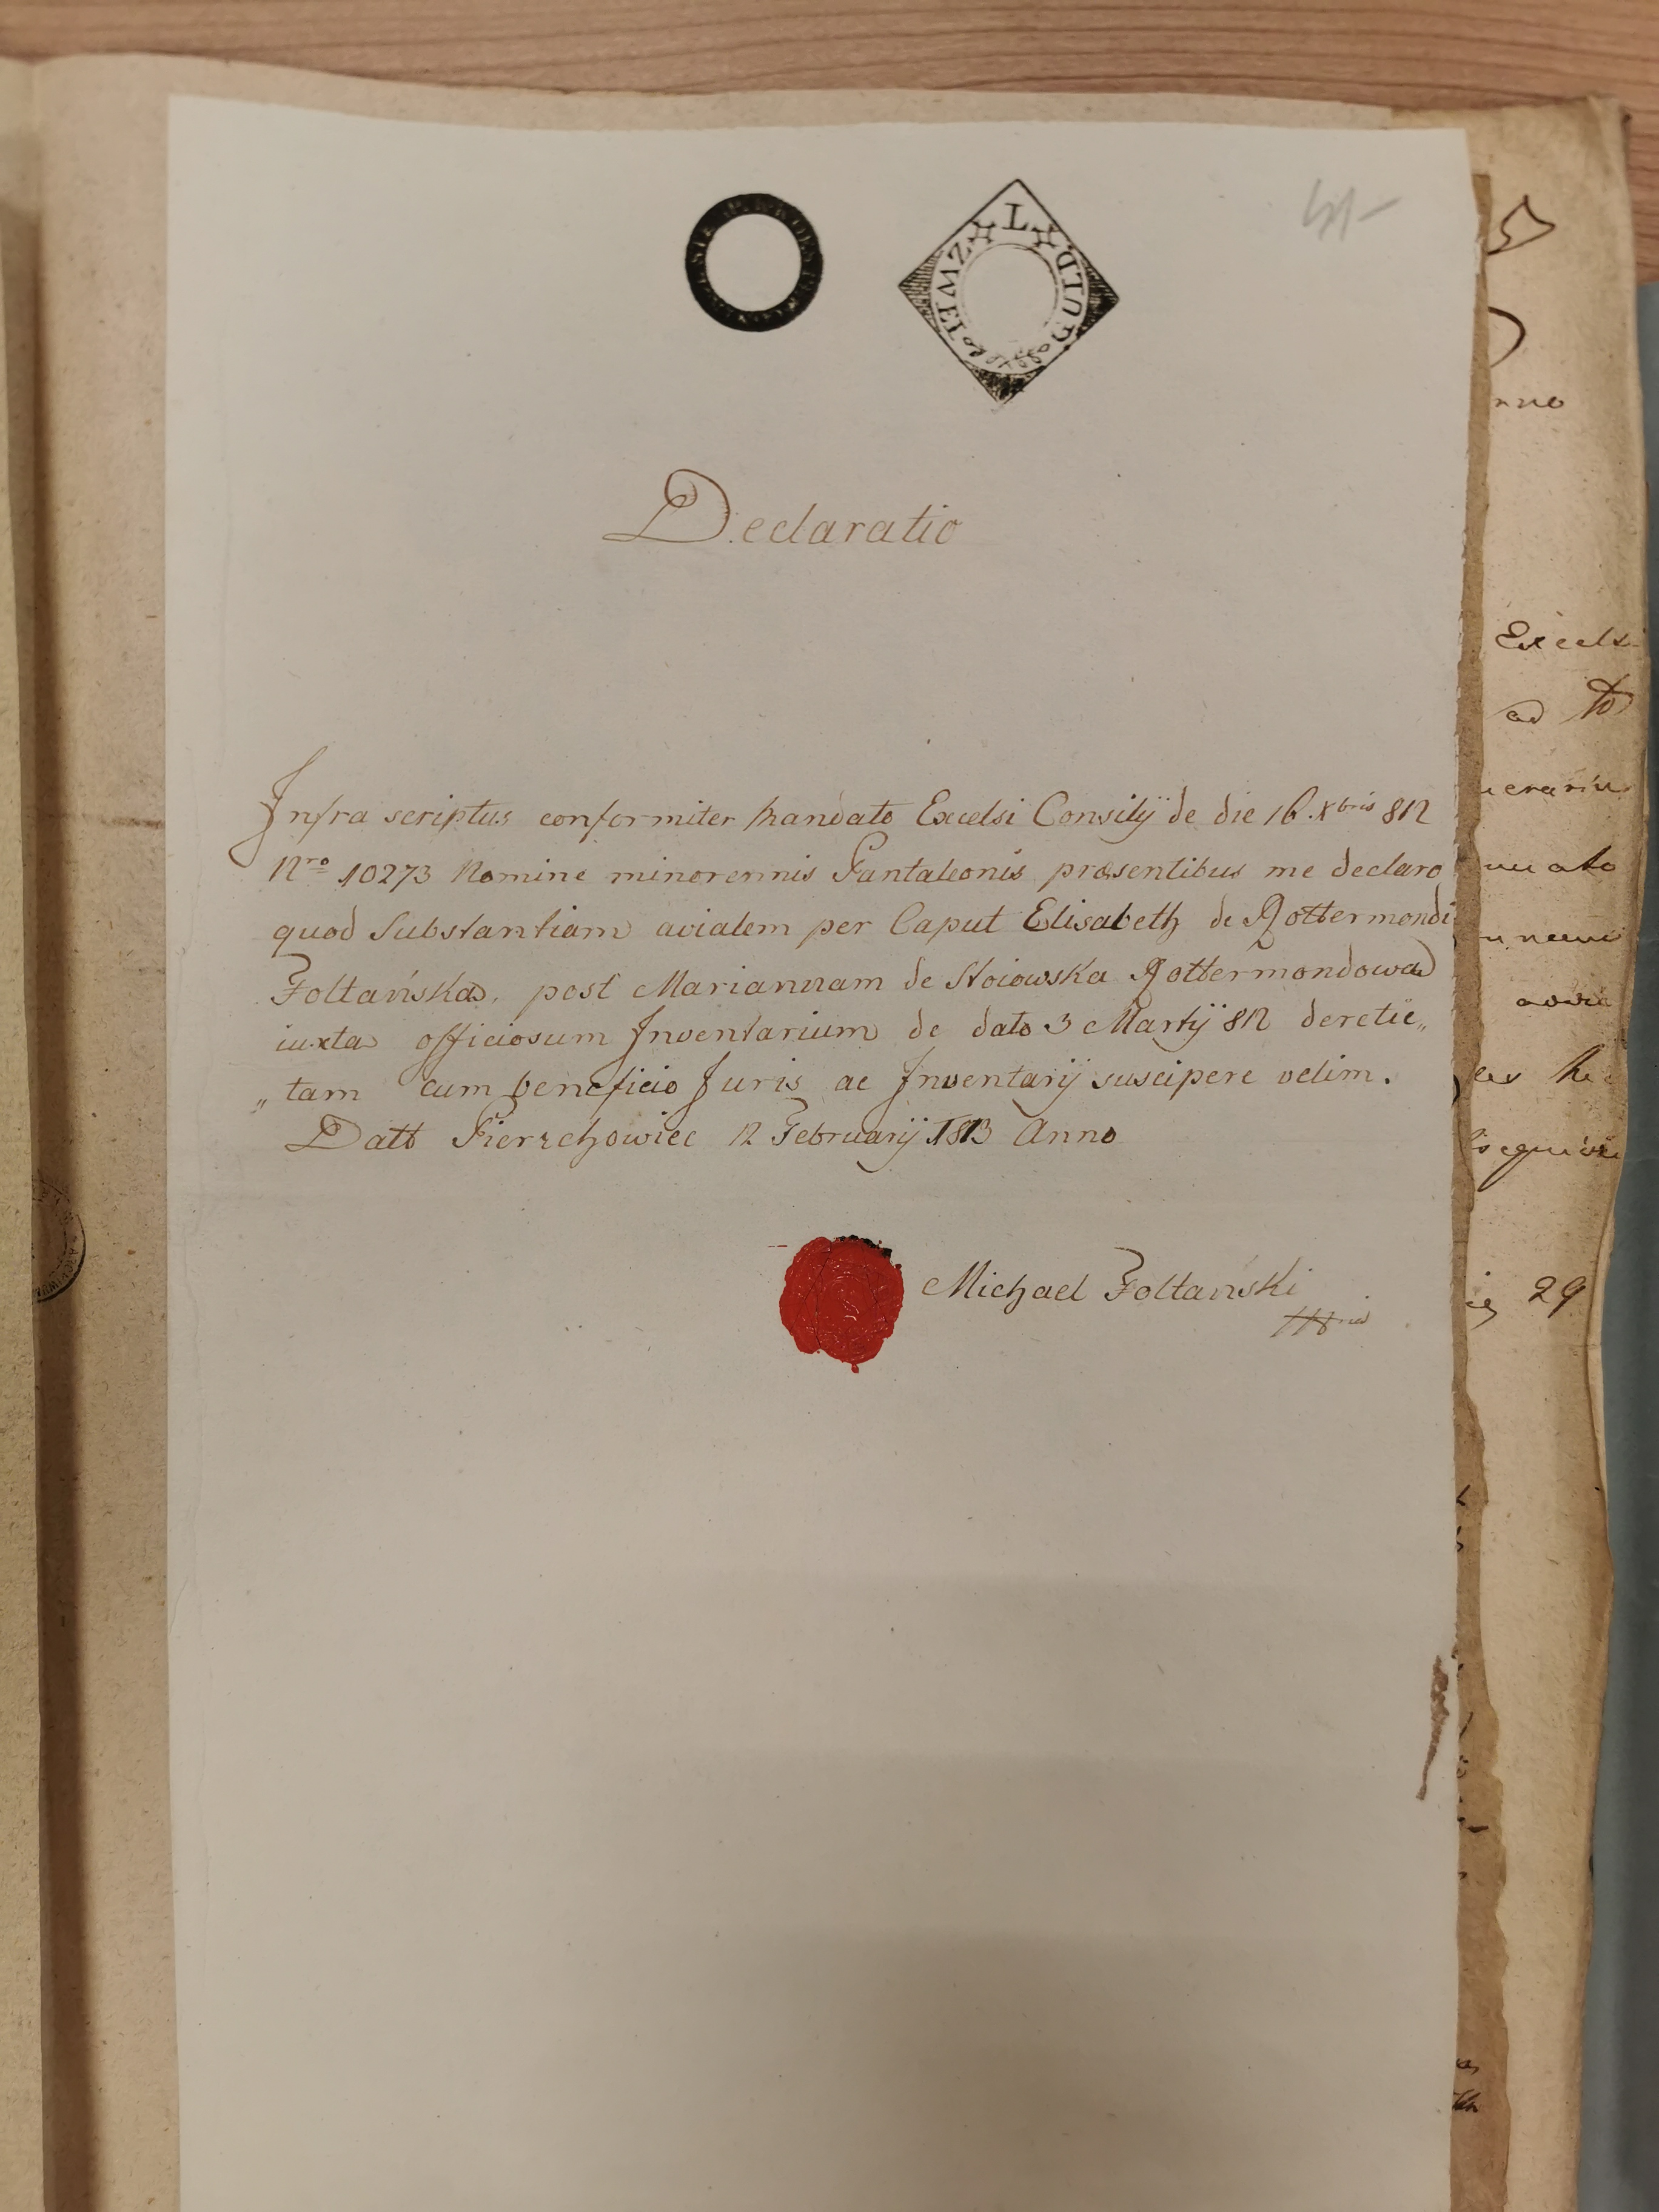 ZWEI GULD T
Declaratio
Infra scriptus conformiter Mandato Excelsi Consilij de die 16. Xbris 812
Nro 10273 Nomine minorennis Pantaleonis præsentibus me declaro
quod Substantiam avialem per Caput Elisabeth de Rottermondi
Foltańska, post Mariannam de Stoiowska Rottermondowa
iuxta officiosum Inventarium de dato 3 Martij 812 derelic„
„tam cum beneficio Juris ac Inventarij suscipere velim.
Datt Pierzchowiec 12 Februarij 1813 Anno
Michael Foltański
Excels
ad
29